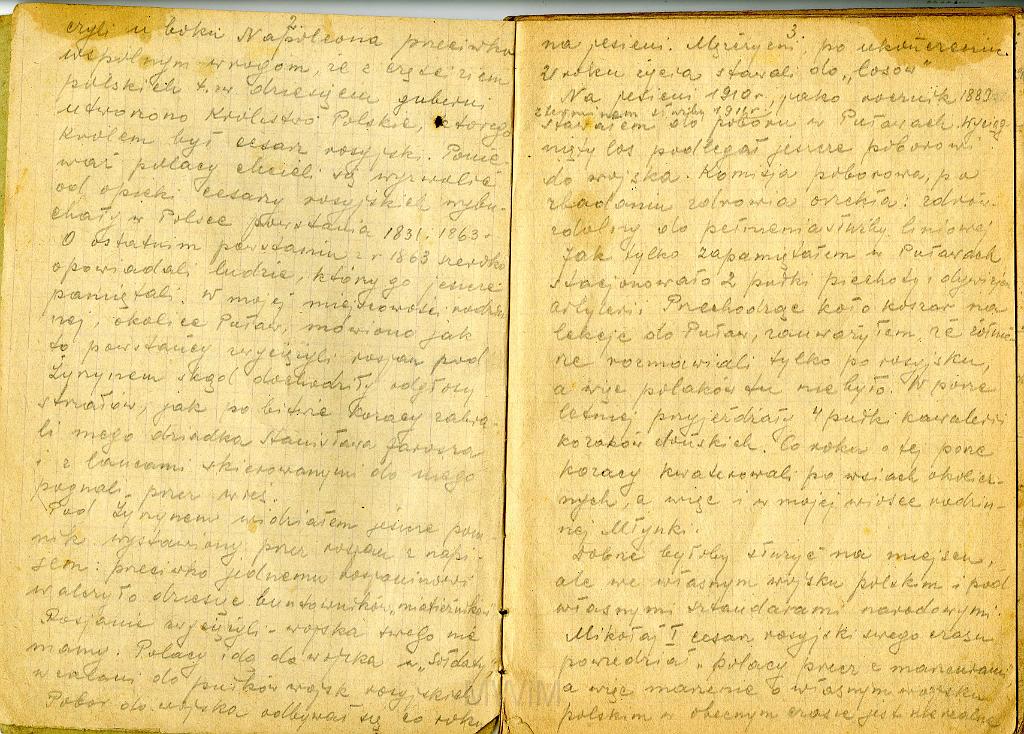 2
czyli u boku Napoleona przeciwko
wspólnym wrogom, że z części ziem
polskich t.zw. dziesięciu guberni
utworzono Królestwo Polskie, którego
Królem był cesarz rosyjski. Ponie-
waż polacy chcieli się wyzwolić
od opieki cesarzy rosyjskich wybu-
chały w Polsce powstania 1831. 1863 r
O ostatnim powstaniu z r 1863 szeroko
opowiadali ludzie, który go jeszcze
pamiętali. W mojej miejscowości rodzin-
nej, okolice Puław, mówiono jak
to powstańcy zwyciężyli rosjan pod
Żyrzynem skąd dochodziły odgłosy
strzałów, jak po bitwie kozacy zabra-
li mego dziadka Stanisława Jarosza
i z lancami skierowanymi do niego
pognali przez wieś.
Pod Żyrzynem widziałem jeszcze pom-
nik wystawiony przez rosjan z napi-
sem: przeciwko jednemu rosjaninowi
walczyło dziesięć buntowników, miatieżników
Rosjanie zwyciężyli - wojska swego nie
mamy. Polacy idą do wojska w "sołdaty"
wcielani do pułków wojsk rosyjskich
Pobór do wojska odbywał się co roku
3
na jesieni. Mężczyźni, po ukończeniu
21 roku życia stawali do "losów"
Na jesieni 1910 r, jako rocznik 1889
z terminem służby 1911 r.
stawałem do poboru w Puławach. Wyciąg-
nięty los podlegał jeszcze poborowi
do wojska. Komisja poborowa, po
zbadaniu zdrowia orzekła: zdrów-
zdolny do pełnienia służby liniowej
Jak tylko zapamiętałem w Puławach
stacjonowało 2 pułki piechoty i dywizjon
artylerii. Przechodząc koło koszar na
lekcje do Puław, zauważyłem, że żołnie-
rze rozmawiali tylko po rosyjsku,
a więc polaków tu nie było. W porze
letniej przyjeżdżały 4 pułki kawalerii
kozaków dońskich. Co roku o tej porze
kozacy kwaterowali po wsiach okolicz-
nych, a więc i w mojej wiosce rodzin-
nej Młynki.
Dobrze byłoby służyć na miejscu,
ale we własnym wojsku polskim i pod
własnymi sztandarami narodowymi.
Mikołaj I cesarz rosyjski swego czasu
powiedział "polacy precz z marzeniami
a więc marzenie o własnym wojsku
polskim w obecnym czasie jest nierealne